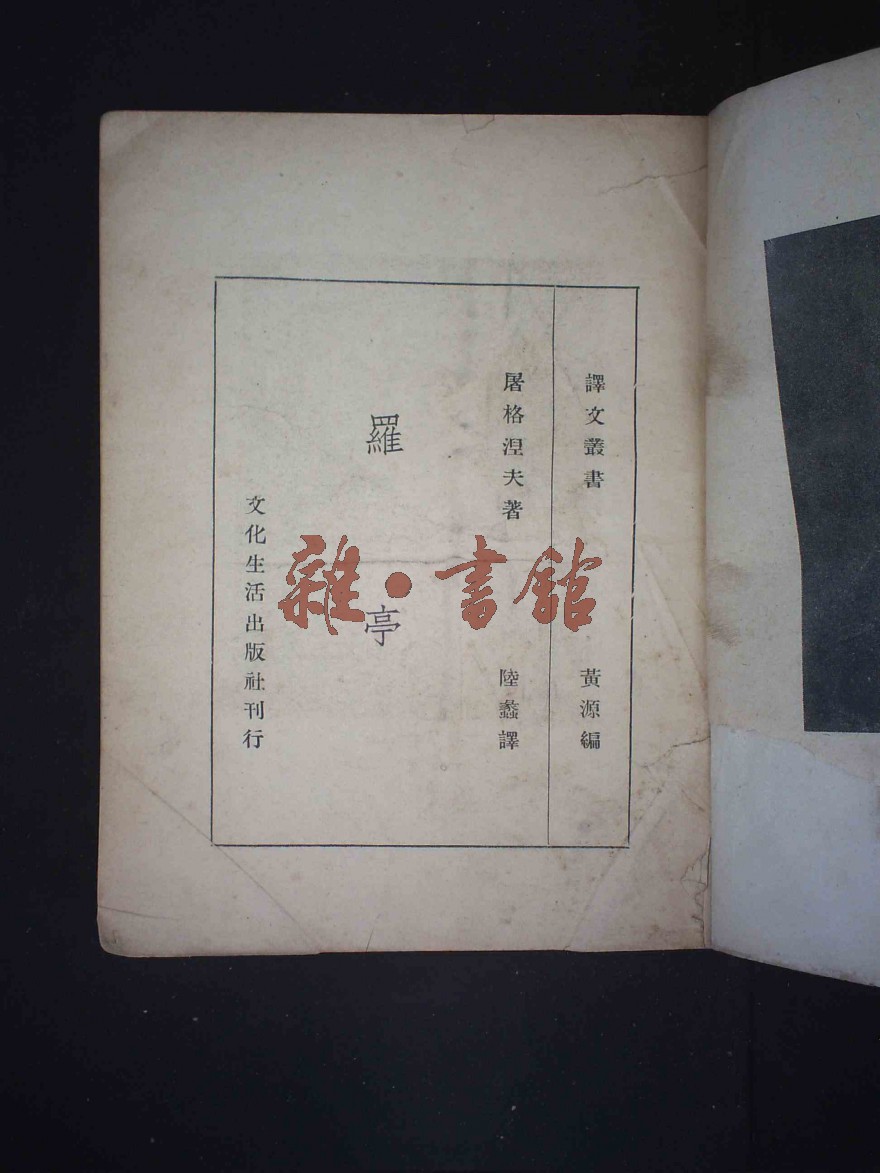 譯文叢書
黃源編
屠格涅夫著
陸蠡譯
羅亭
文化生活出版社刊行
雜·書館